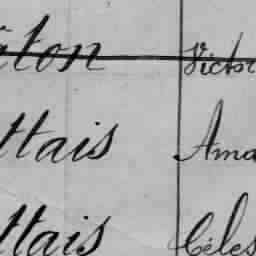 âton Victor
ttais Ama
ttais Céles